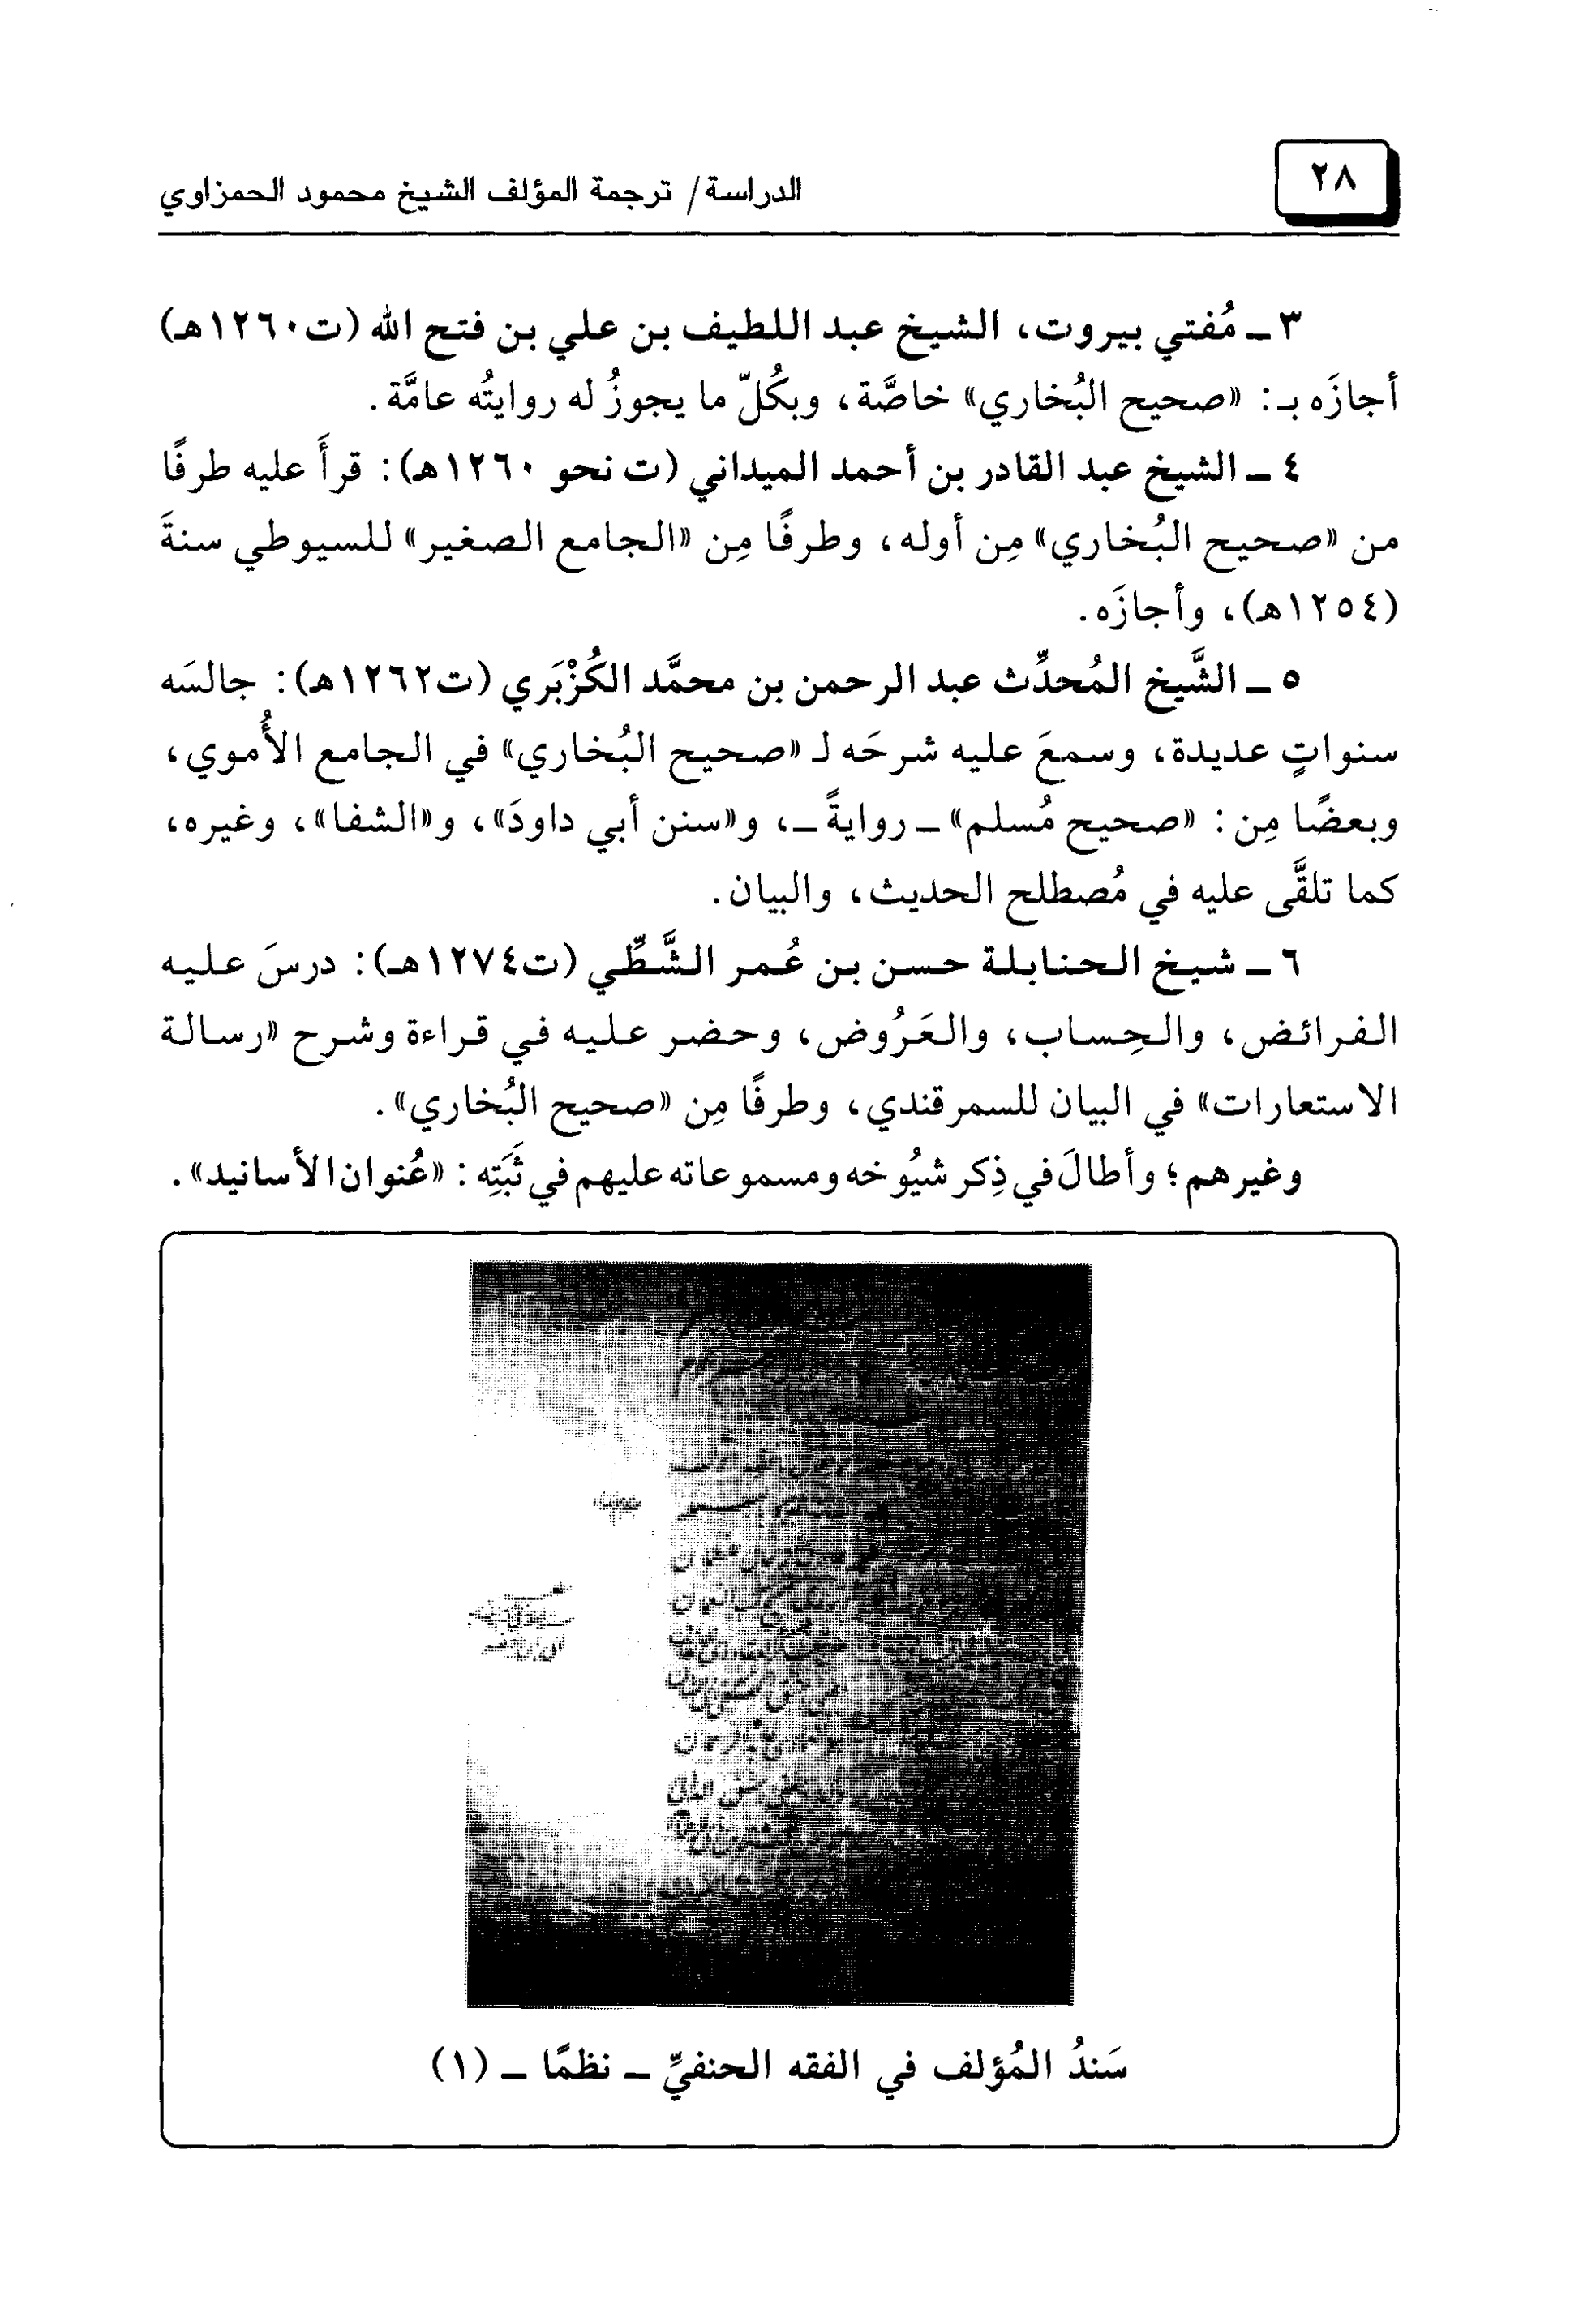 ٢٨
الدراسة/ ترجمة المؤلف الشيخ محمود الحمزاوي
٣ ـ مُفتي بيروت، الشيخ عبد اللطيف بن علي بن فتح الله (ت١٢٦٠هـ)
أجازَه بـ: «صحيح البُخاري» خاصَّة، وبكُلّ ما يجوزُ له روايتُه عامَّة.
٤ ـ الشيخ عبد القادر بن أحمد الميداني (ت نحو ١٢٦٠هـ): قرأَ عليه طرفًا
من «صحيح البُخاري» مِن أوله، وطرفًا مِن «الجامع الصغير» للسيوطي سنةَ
(١٢٥٤هـ)، وأجازَه.
٥ ـ الشَّيخ المُحدِّث عبد الرحمن بن محمَّد الكُزْبَري (ت١٢٦٢هـ): جالسَه
سنواتٍ عديدة، وسمعَ عليه شرحَه لـ «صحيح البُخاري» في الجامع الأُموي،
وبعضًا مِن: «صحيح مُسلم» ـ روايةً ـ، و«سنن أبي داودَ»، و«الشفا»، وغيره،
كما تلقَّى عليه في مُصطلح الحديث، والبيان.
٦ ـ شيخ الحنابلة حسن بن عُمر الشَّطِّي (ت١٢٧٤هـ): درسَ عليه
الفرائض، والحِساب، والعَرُوض، وحضر عليه في قراءة وشرح «رسالة
الاستعارات» في البيان للسمرقندي، وطرفًا مِن «صحيح البُخاري».
وغيرهم؛ وأطالَ في ذِكر شيُوخه ومسموعاته عليهم في ثَبَتِه: «عُنوان الأسانيد».
سَندُ المُؤلف في الفقه الحنفيِّ ـ نظمًا ـ (١)